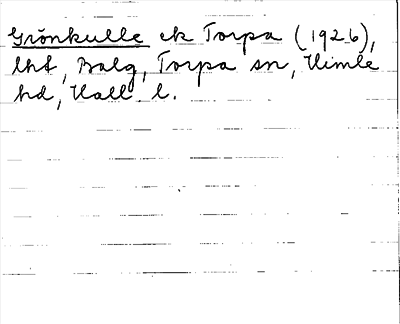 Grönkulle ek Torpa (1926),
lht, Balg, Torpa sn, Himle
hd, Hall. l.